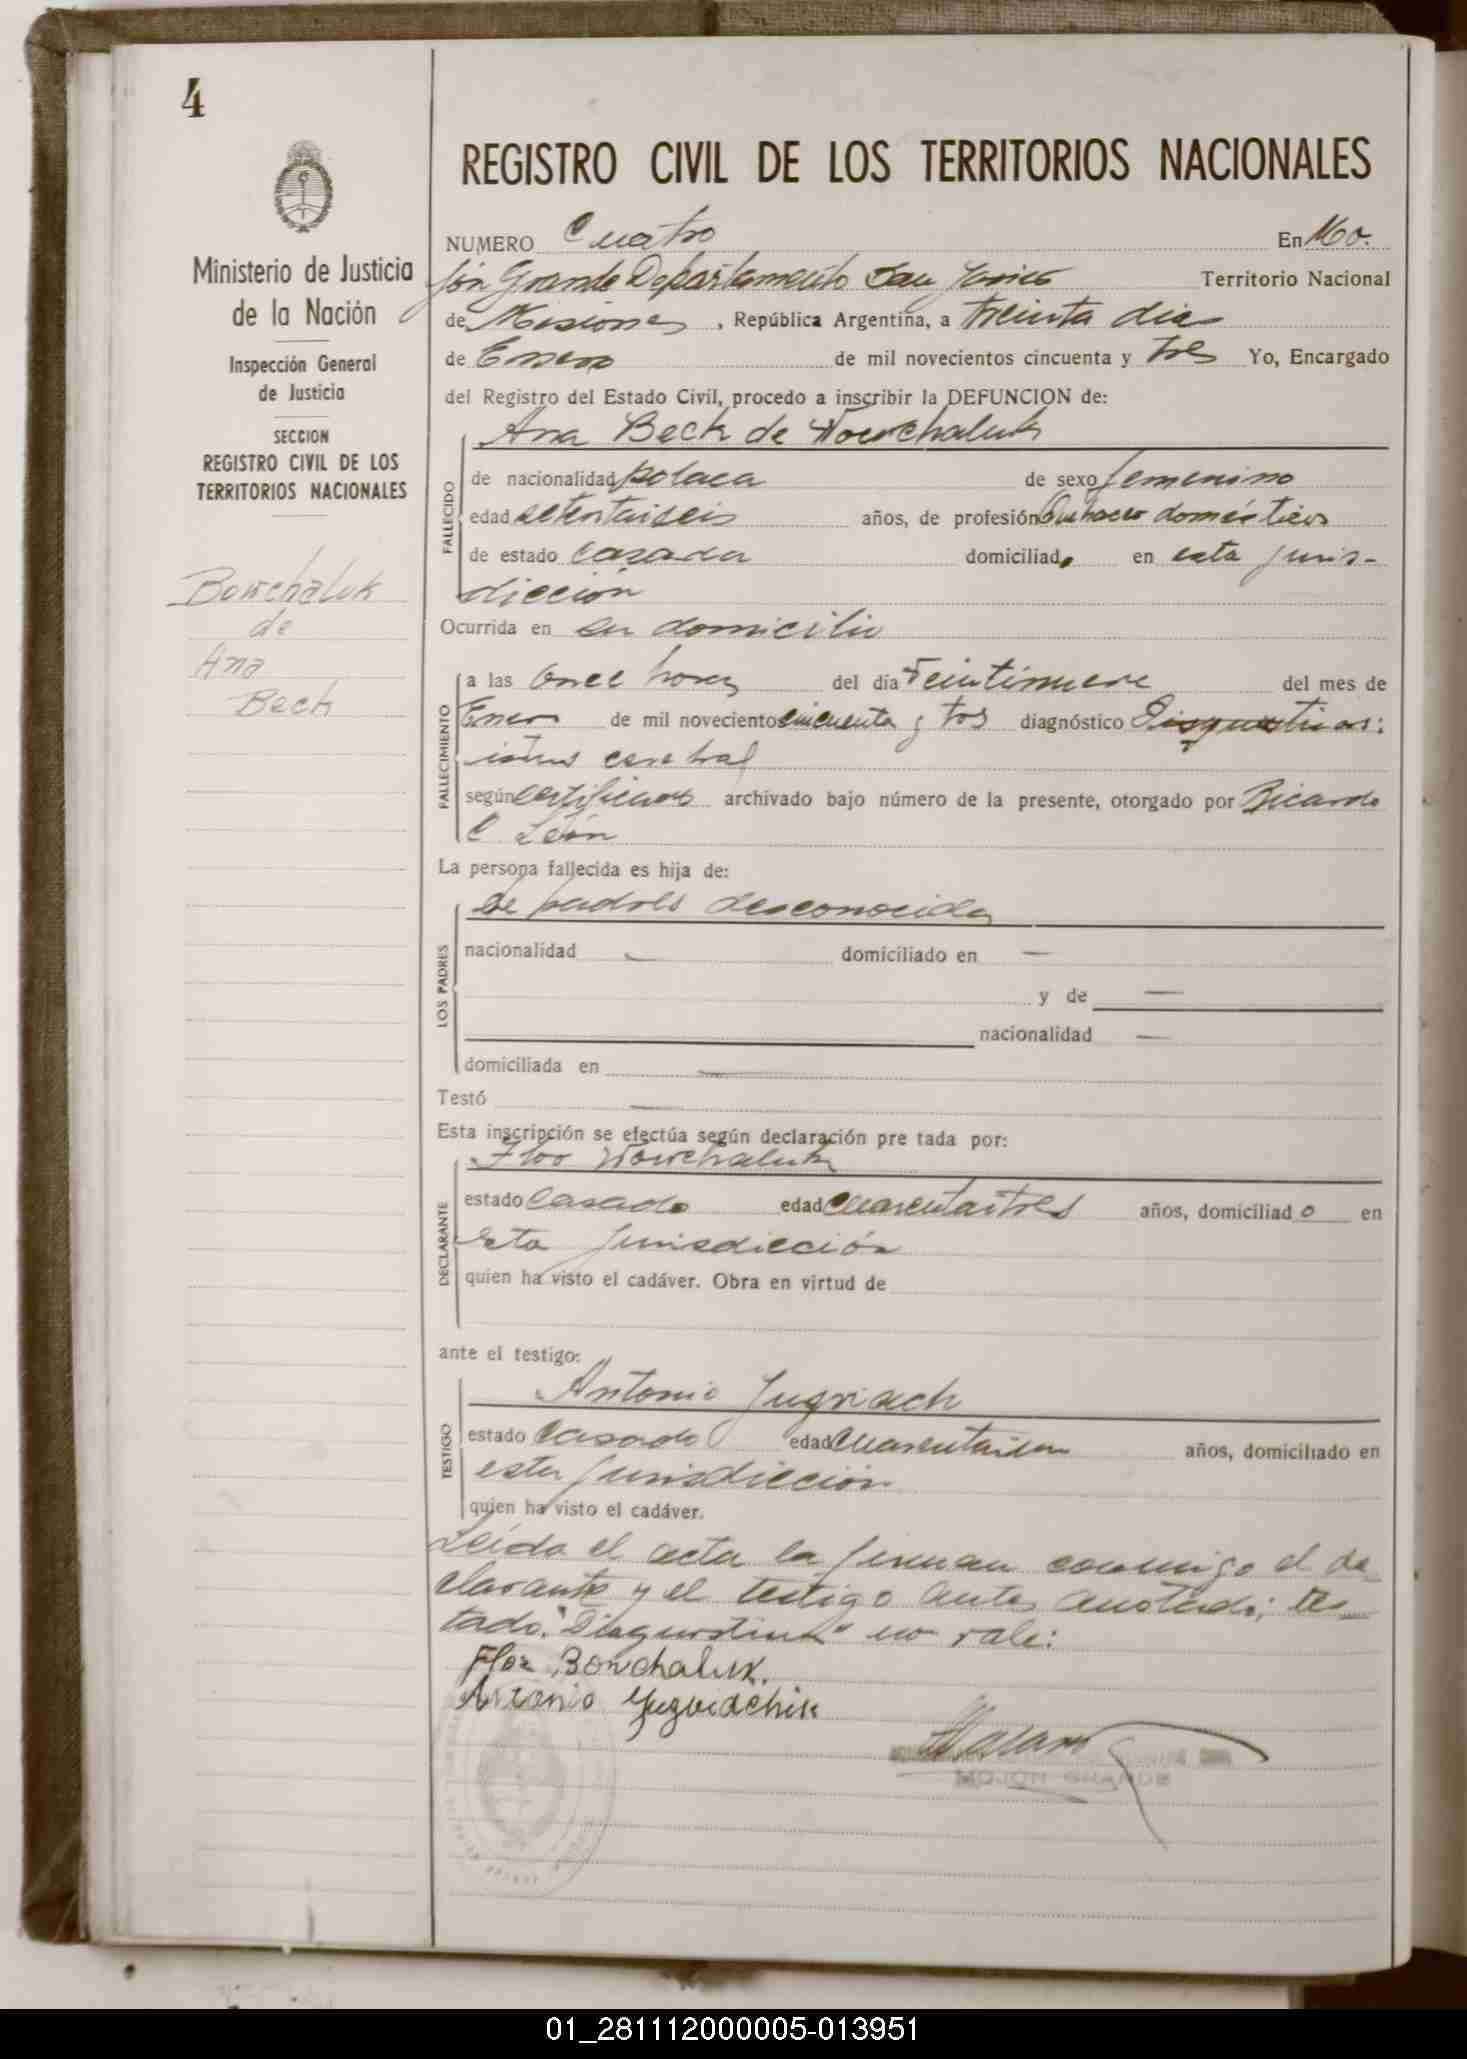 4
REGISTRO CIVIL DE LOS TERRITORIOS NACIONALES
Ministerio de Justicia
de la Nación
Inspección General
de Justicia
SECCION
REGISTRO CIVIL DE LOS
TERRITORIOS NACIONALES
Bowchaluk
de
Ana
Beck
NUMERO Cuatro En Mo-
jón Grande Departamento San Javier Territorio Nacional
de Misiones, República Argentina, a treinta dias
de Enero de mil novecientos cincuenta y tres Yo, Encargado
del Registro del Estado Civil, procedo a inscribir la DEFUNCION de:
Ana Beck de Wowchaluk
FALLECIDO
de nacionalidad polaca de sexo femenino
edad setentaiseis años, de profesión Quehacer domésticos
de estado casada domiciliada en esta juris-
dicción
Ocurrida en su domicilio
FALLECIMIENTO
a las once horas del día Veintinueve del mes de
Enero de mil novecientos cincuenta y tres diagnóstico
ictus cerebral
según certificado archivado bajo número de la presente, otorgado por Ricardo
C León
La persona fallecida es hija de:
de padres desconocidos
LOS PADRES
nacionalidad — domiciliado en —
y de —
nacionalidad —
domiciliada en —
Testó —
Esta inscripción se efectúa según declaración pre tada por:
Flor Wowchaluk
DECLARANTE
estado casado edad cuarentaitres años, domiciliado en
esta jurisdicción
quien ha visto el cadáver. Obra en virtud de
ante el testigo:
Antonio
TESTIGO
estado Casado edad años, domiciliado en
esta jurisdicción
quien ha visto el cadáver.
Leida el acta la firman conmigo el de-
clarante y el testigo antes anotado; tes-
tado: no vale:
Flor Bowchaluk.
Antonio
MOJON GRANDE
01_281112000005-013951